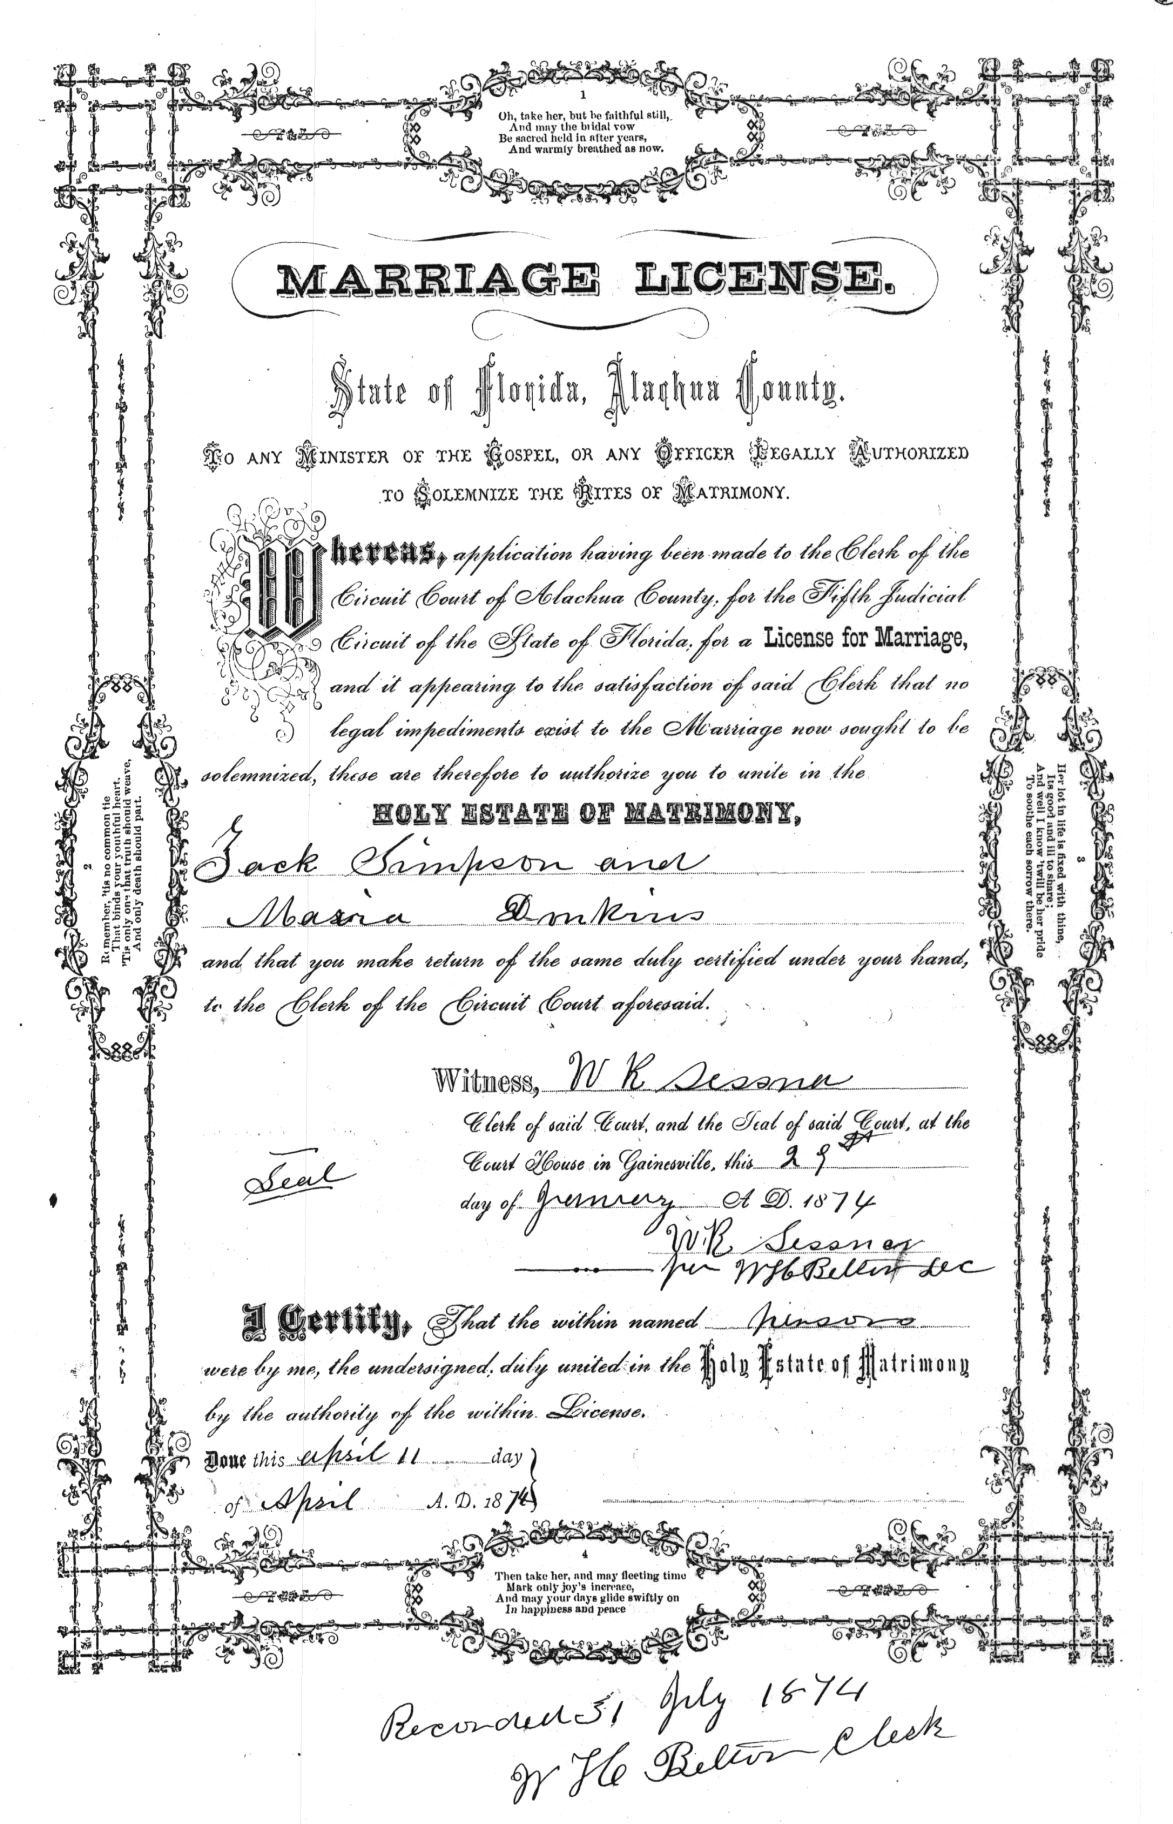 1
Oh, take her, but be faithful still,
And may the bridal vow
Be sacred held in after years,
And warmly breathed as now.
MARRIAGE LICENSE.
State of Florida, Alachua County.
TO ANY MINISTER OF THE GOSPEL, OR ANY OFFICER LEGALLY AUTHORIZED
TO SOLEMNIZE THE RITES OF MATRIMONY.
Whereas, application having been made to the Clerk of the
Circuit Court of Alachua County, for the Fifth Judicial
Circuit of the State of Florida, for a License for Marriage,
and it appearing to the satisfaction of said Clerk that no
legal impediments exist to the Marriage now sought to be
solemnized, these are therefore to authorize you to unite in the
HOLY ESTATE OF MATRIMONY,
Jack Simpson and
Maria Donkins
and that you make return of the same duly certified under your hand,
to the Clerk of the Circuit Court aforesaid.
2
Remember, 'tis no common tie
That binds your youthful heart.
'Tis only one that truth should weave,
And only death should part.
3
Her lot in life is fixed with thine,
Its good and ill to share;
And well I know 'twill be her pride
To soothe each sorrow there.
Witness, W K Sessna
Clerk of said Court, and the Seal of said Court, at the
Court House in Gainesville, this 29
Seal
day of January A D. 1874
W.K Sessna
per W H Belton DC
I Certify, That the within named persons
were by me, the undersigned, duly united in the Holy Estate of Matrimony
by the authority of the within License.
Done this april 11 day
of April A. D. 1874
4
Then take her, and may fleeting time
Mark only joy's increase,
And may your days glide swiftly on
In happiness and peace
Recorded 31 July 1874
W H Belton Clerk